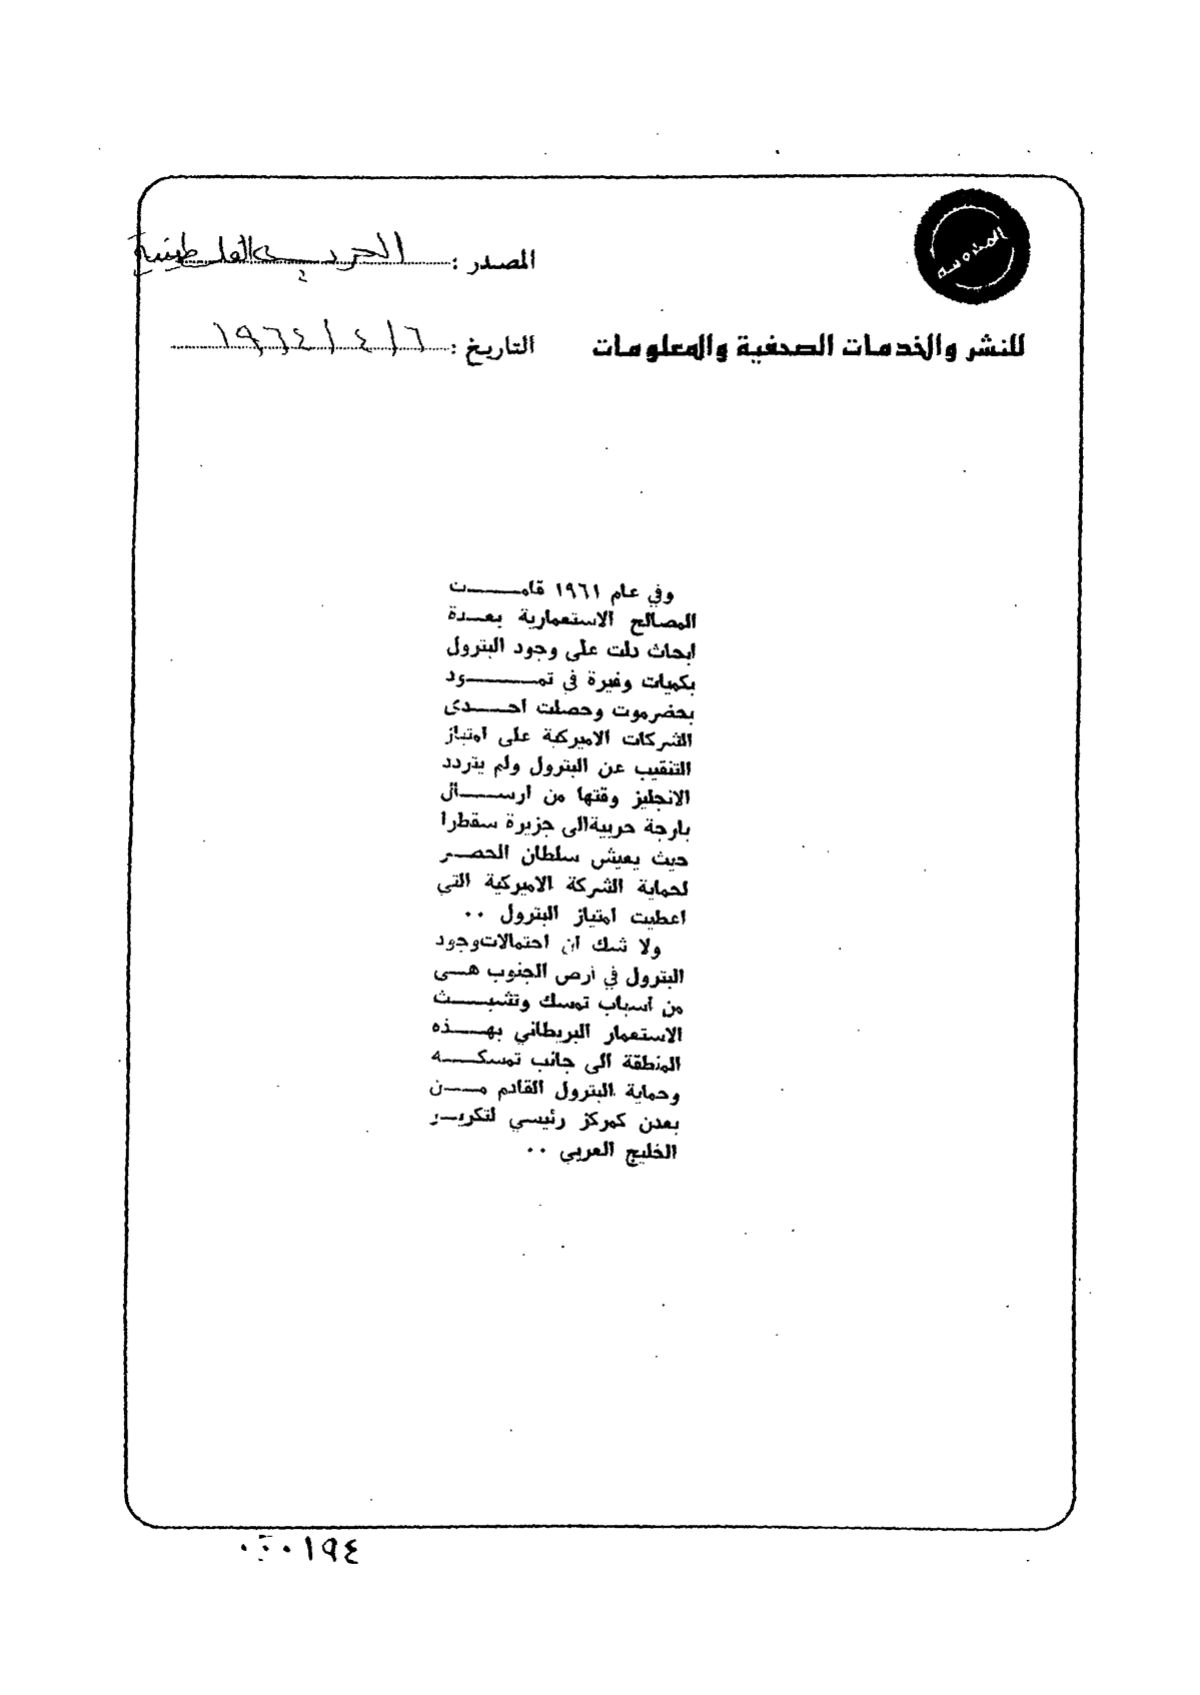 المصدر : الحرية الفلسطينية
للنشر والخدمات الصحفية والمعلومات
التاريخ : ٦ / ٤ / ١٩٦٤
وفي عام ١٩٦١ قامــــت
المصالح الاستعمارية بعـدة
ابحاث دلت على وجود البترول
بكميات وفيرة في ثمـــــود
بحضرموت وحصلت احـــدى
الشركات الاميركية على امتياز
التنقيب عن البترول ولم يتردد
الانجليز وقتها من ارســـال
بارجة حربيةالى جزيرة سقطرا
حيث يعيش سلطان الحصـر
لحماية الشركة الاميركية التي
اعطيت امتياز البترول ٠٠
ولا شك ان احتمالاتوجود
البترول في ارض الجنوب هـي
من اسباب تمسك وتشبــث
الاستعمار البريطاني بهــذه
المنطقة الى جانب تمسكـــه
وحماية البترول القادم مــن
بعدن كمركز رئيسي لتكريـر
الخليج العربي ٠٠
١٩٤